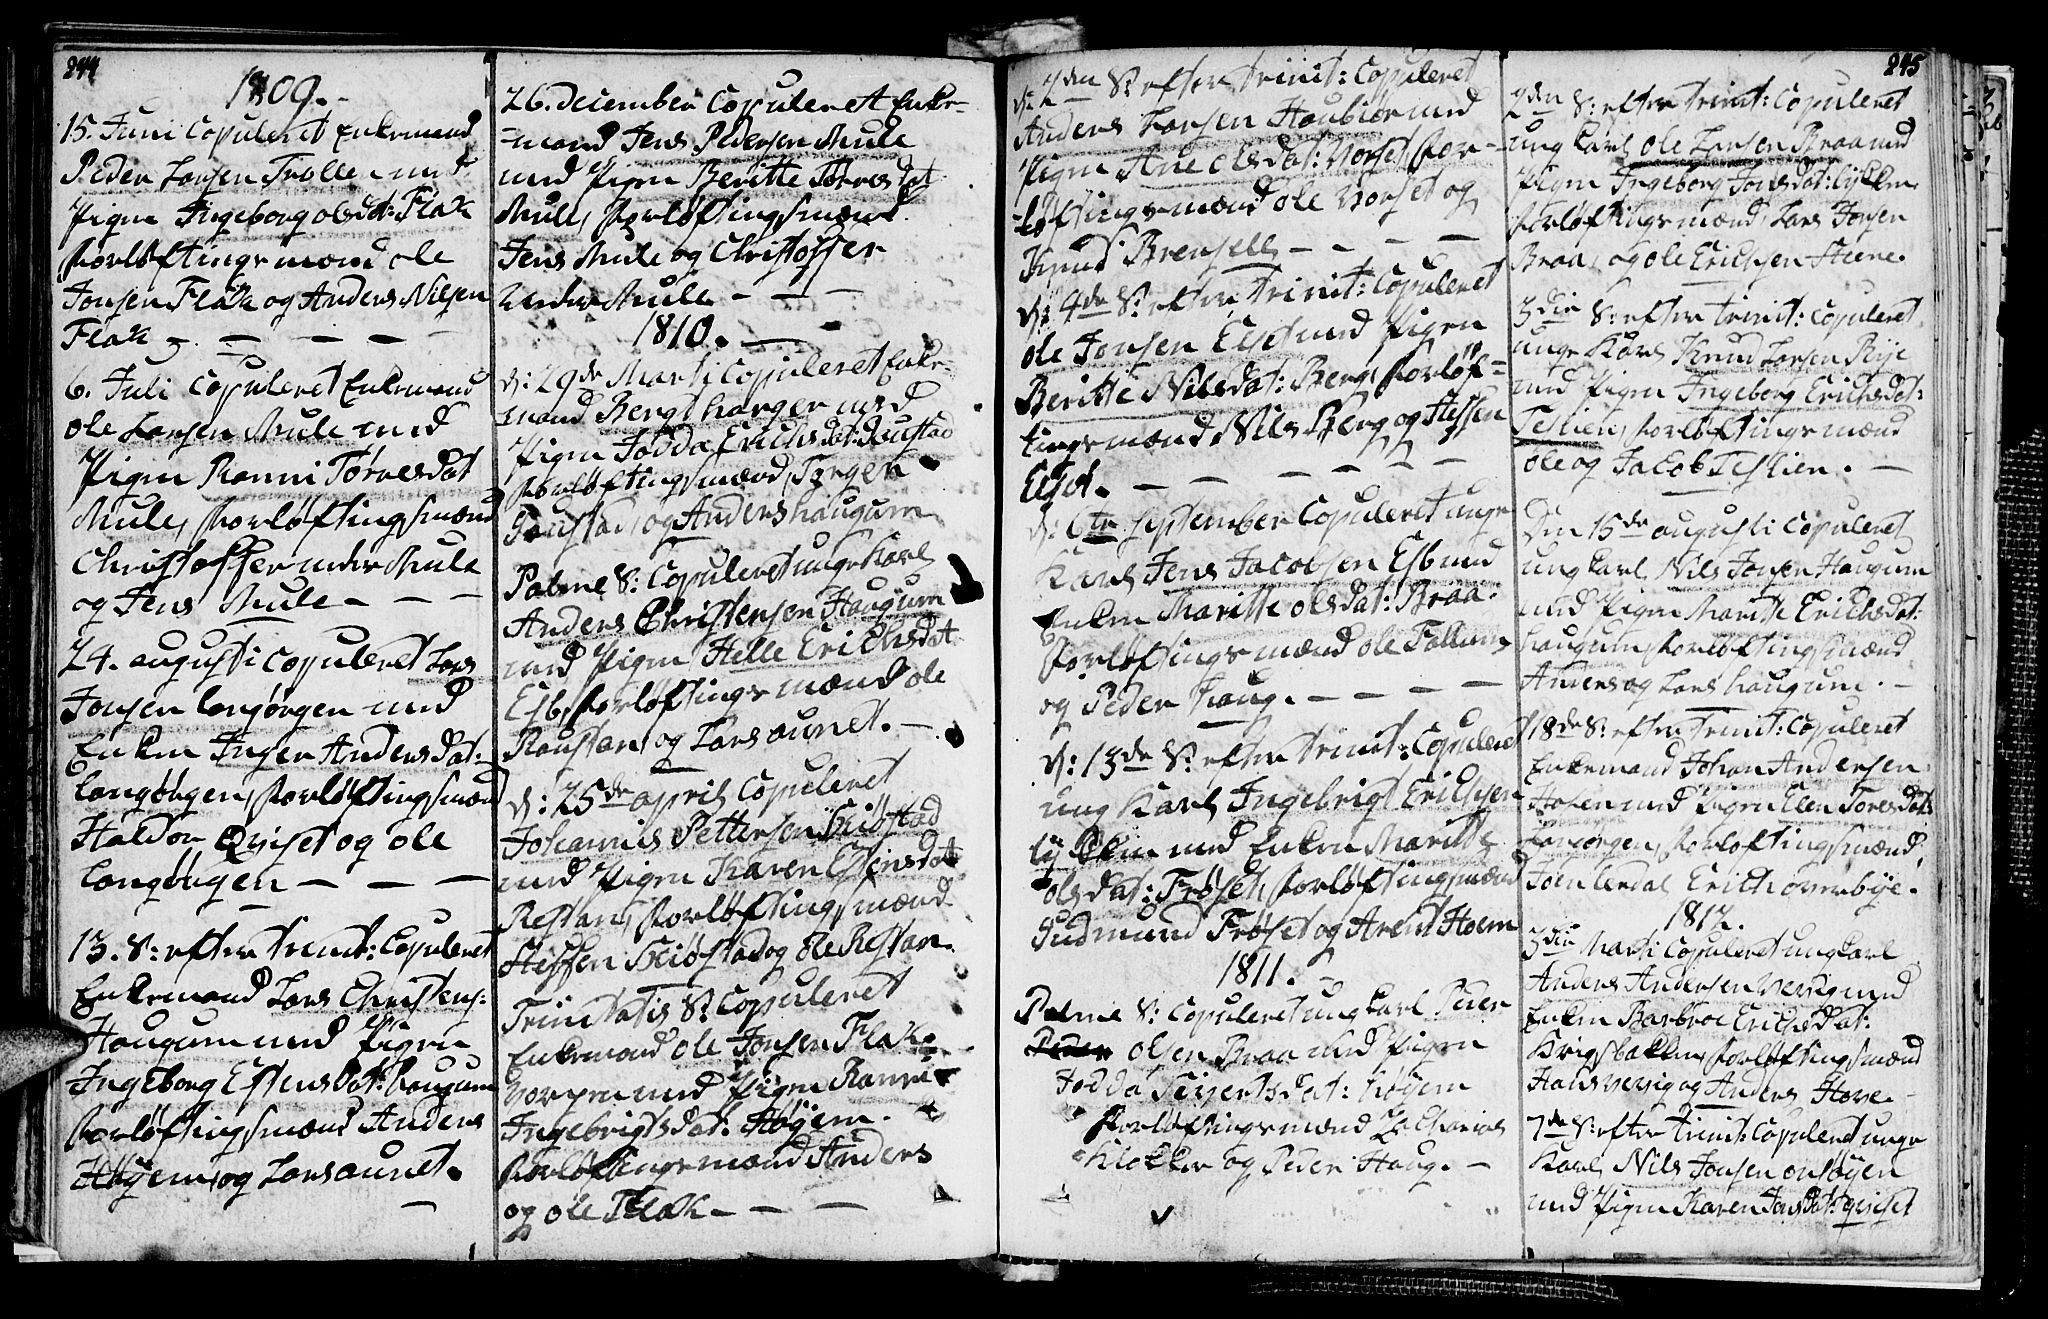 244
1809.
15. Juni Copuleret Enkemand
Peder Larsen Trolle med
Pigen Ingeborg olsdat: Flak
forløftingsmænd ole
Jonsen Flak og Anders Nilsen
Flak
6. Juli Copuleret Enkemand
ole Larsen Mule med
Pigen Ranni Torresdat
Mule, forløftingsmænd
Christoffer nedre Mule
og Jens Mule
24. augusti Copuleret Lars
Jonsen Langørgen med
Enken Inger Andersdat:
Langørgen, forløftingsmænd
Haldor Qviset og ole
Langørgen
13. S: efter trinit: Copuleret
Enkemand Lars Christens:
Haugum med Pigen
Ingeborg Estensdat: haugum
forløftingsmænd Anders
Høyem, og Lars aunet.
26. december Copuleret Enke-
-mand Jens Pedersen Mule
med Pigen Beritte Torresdat
Mule, forløftingsmænd
Jens Mule og Christoffer
nedre Mule
1810.
d: 29de Marti Copuleret Enke-
mand Bengt harger med
Pigen Jødda Erichsdat: Loustad
forløftingsmænd, Jørgen
Loustad, og Anders haugum
Palme S: Copuleret unge Karl
Anders Christensen Haugum
med Pigen Helle Erichsdat
Esb, forløftingsmænd ole
Raustan, og Lars aunet.
d: 25de april Copuleret
Johannis Pettersen Skiøstad
med Pigen Karen Estensdat
Restan, forløftingsmænd
Steffen Skiøstad og ole Restan.
Trinitatis S: Copuleret
Enkemand ole Jonsen Flak-
vorpen med Pigen Ranni
Ingebrigtsdat: Høyem.
forløftingsmænd Anders
og ole Flak
245
d: 2den S: efter trinit: Copuleret
Anders Larsen Haubior med
Pigen Ane olsdat: Norset, for-
-løftingsmænd ole Norset og
Knud Brensell
d: 4de S: efter trinit: Copuleret
ole Jonsen Elset med Pigen
Beritte Nilsdat: Berg, forløf-
tingsmænd, Nils Berg og Steffen
Elset.
d: 6te september Copuleret unge
Karl Jens Jacobsen Esb med
Enken Maritte olsdat: Braa.
forløftingsmænd ole Tollum
og Peder haug.
d: 13de S: efter trinit: Copuleret
ung Karl Ingebrigt Erichsen
lykken med Enken Maritte
olsdat: Frøset, forløftingsmænd
Gudmund Frøset og Arent Hoem
1811.
Palme S: Copuleret ung karl Peder
olsen Braa med Pigen
Jodda Sivertsdat: høyem
forløftingsmænd Zacharias
Klokker og Peder Haug.
2den S: efter trinit: Copuleret
ung karl ole Larsen Braa med
Pigen Ingeborg Jonsdat: lykken
forløftingsmænd Lars Jonsen
Braa, og ole Erichsen Steene.
3die S: efter trinit: Copuleret
unge Karl Knud Larsen Rije
med Pigen Ingeborg Erichsdat:
Teslien, forløftingsmænd
ole og Jacob Teslien.
Den 15de augusti Copuleret
ung karl Nils Jonsen Haugum
med Pigen Maritte Erichsdat:
haugum, forløftingsmænd
Anders og Lars haugum.
18de S: efter trinit: Copuleret
Enkemand Johan Andersen
Hofen med Pigen Elen Toresdat:
Langørgen, forløftingsmænd
Joen lerdal Erich overbye.
1812.
3die Marti Copuleret ung karl
Anders Andersen versig med
Enken Barbroe Erichsdat:
Krigsbakken, forløftingsmænd
Hans versig og Anders Hove.
7de S: efter trinit: Copuleret unge
Karl Nils Jonsen onsøyen
med Pigen Karen Jonsdat: qviset